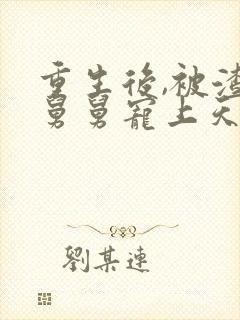 重生後,被渣
舅舅寵上天
劉某連